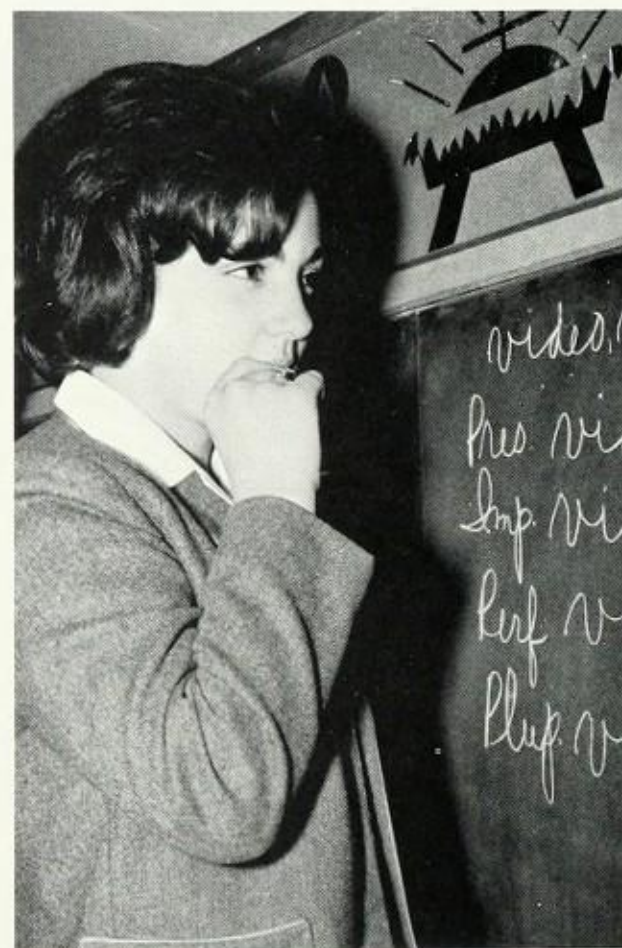 video,
Pres. vi
Imp. vi
Perf v
Plup. v